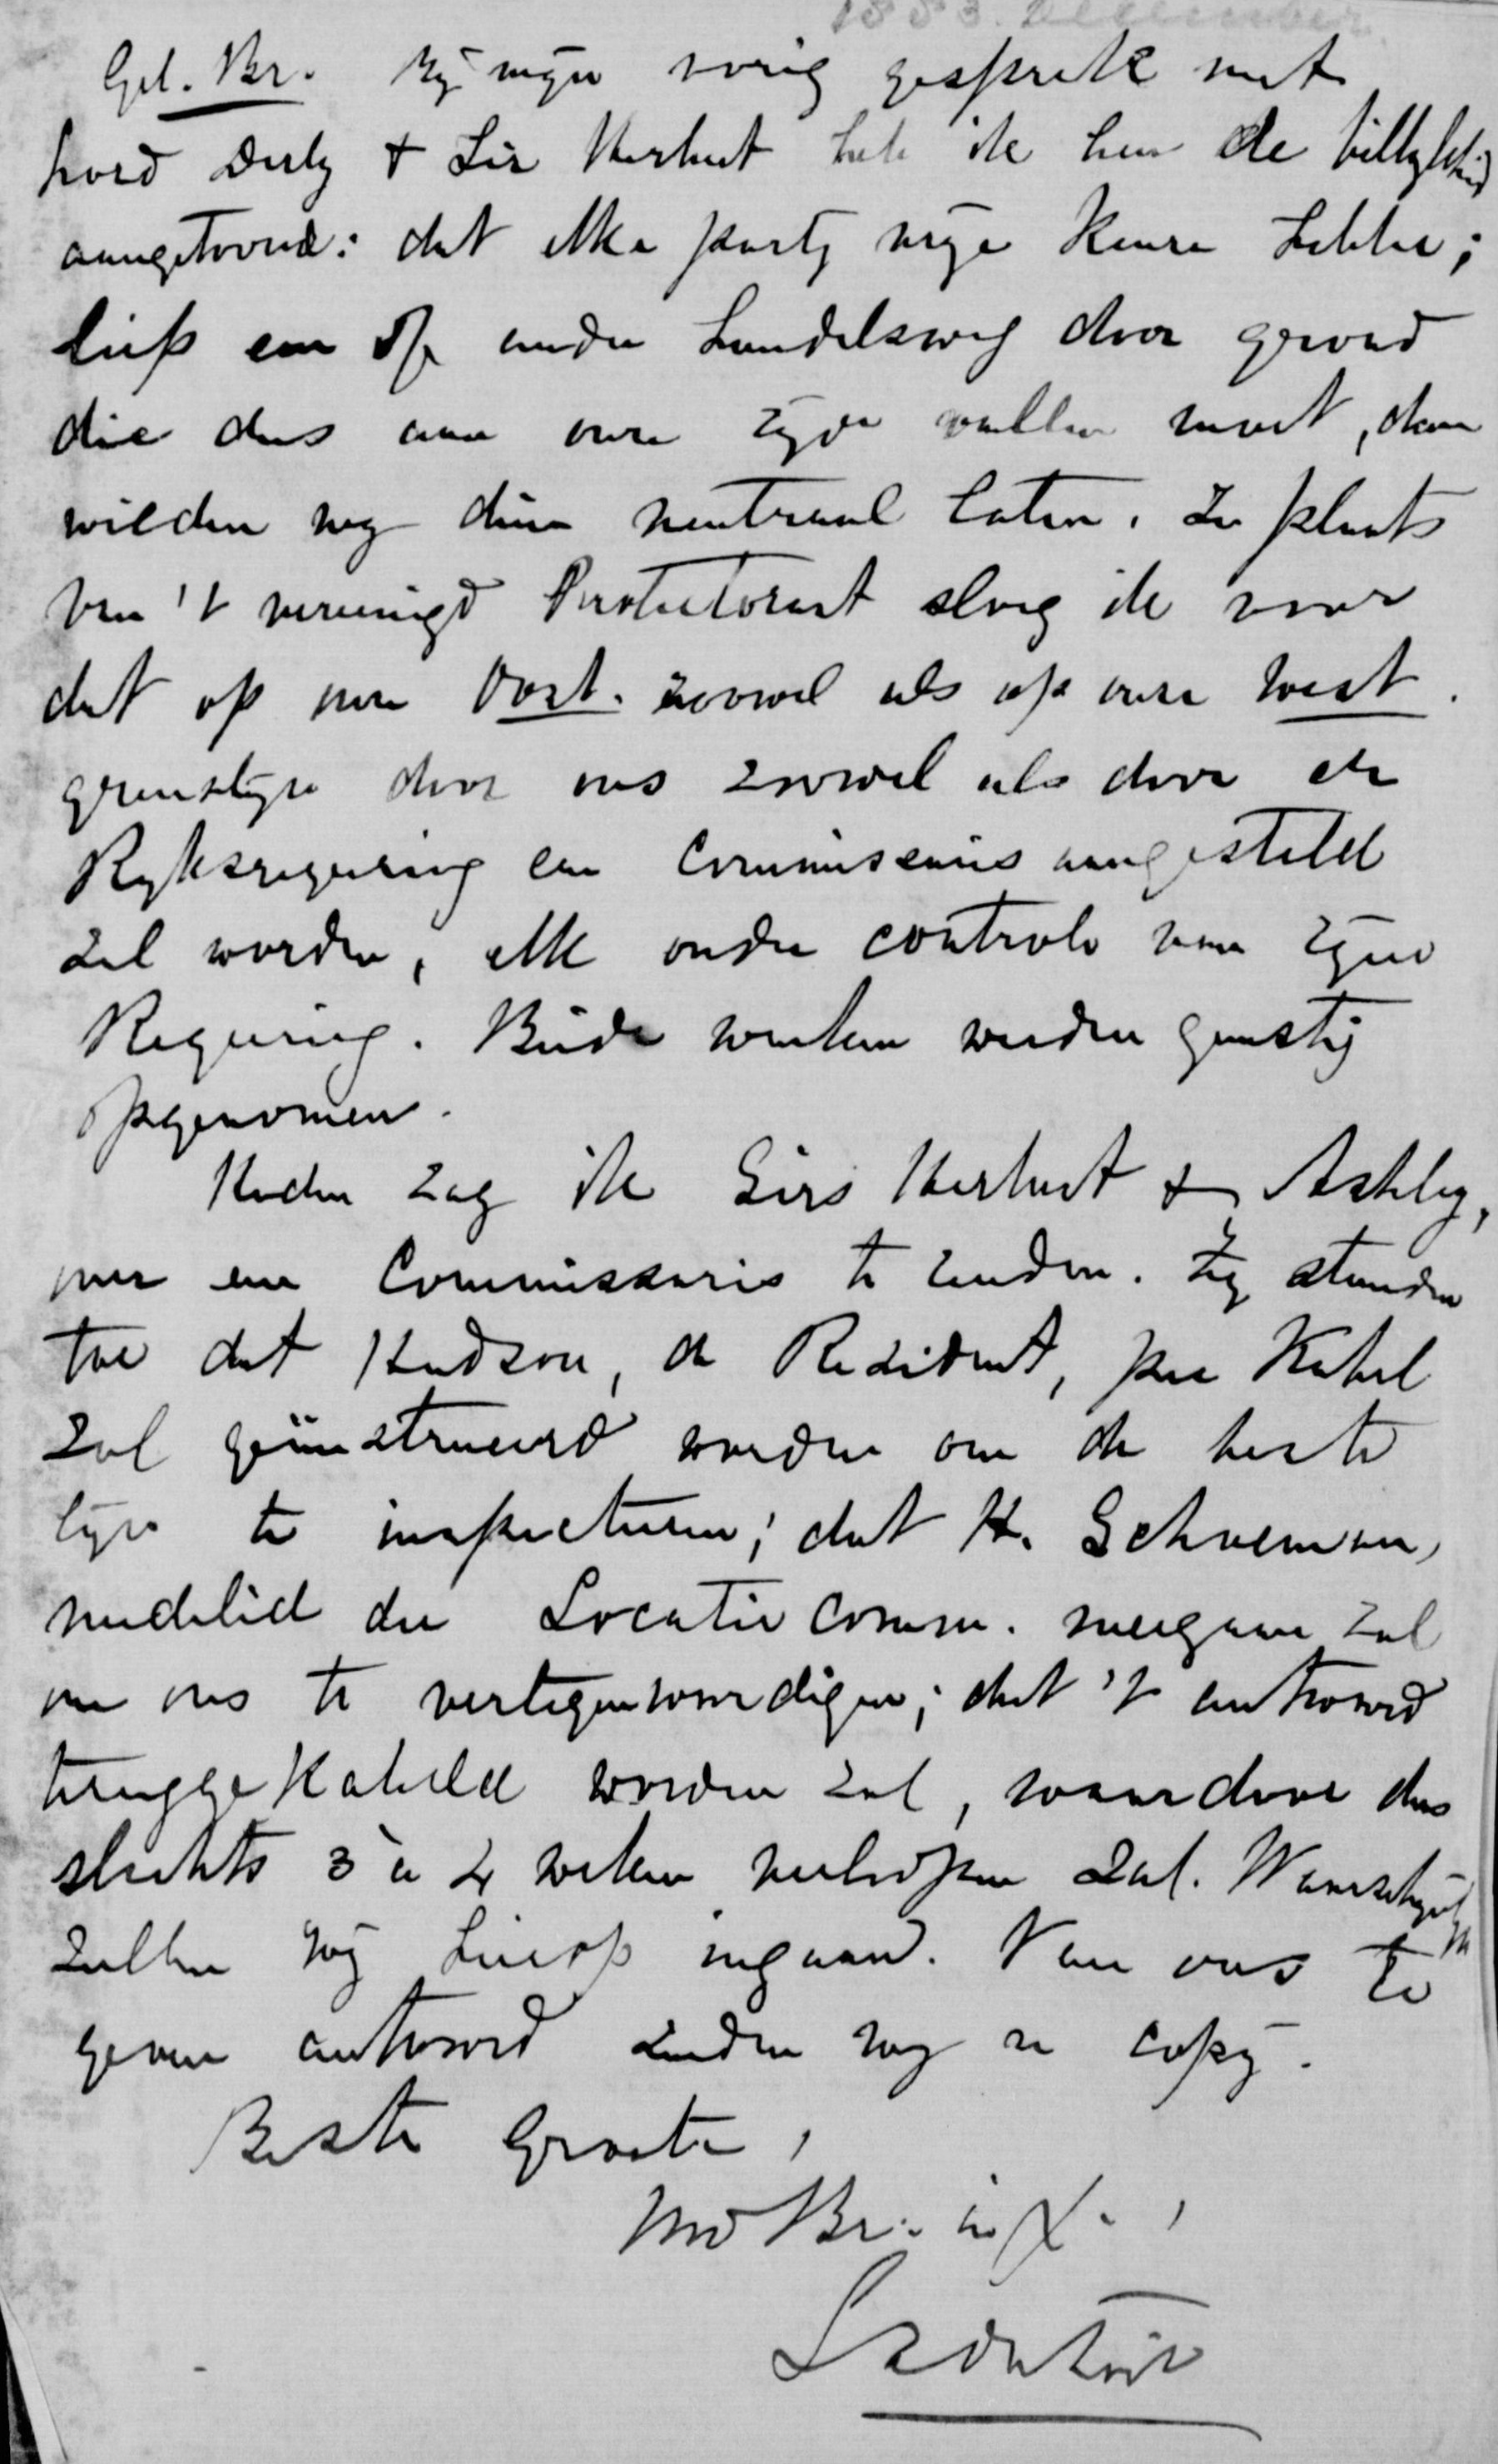 1883. December
Gel. Br. By mijn vorig gesprek met
Lord Derby & Sir Herbert heb ik hun de billykheid
aangetoond: dat elke party vrije keuze hebbe;
liep een of ander handelsweg door grond
die dus aan onze zyde vallen moet, dan
wilden wy dien neutraal laten. In plaats
van 't vereenigd Protectoraat sloeg ik voor
dat op onze Oost- zoowel als op onze West-
grenslijn door ons zoowel als door de
Ryksregering een Commissaris aangesteld
zal worden, elk onder controle van zijne
Regering. Beide punten werden gunstig
opgenomen.
Heden zag ik Sirs Herbert & Ashley,
over een Commissaris te zenden. Zy stonden
toe dat Hudson, de Resident, per Kabel
zal geïnstrueerd worden om de beste
lijn te inspecteren; dat H. Schoeman,
medelid der Locatie comm. meegaan zal
om ons te vertegenwoordigen; dat 't antwoord
teruggekabeld worden zal, waardoor dus
slechts 3 à 4 weken verloopen zal. Waarschynlyk
zullen wij hierop ingaan. Van ons te
geven antwoord zenden wy u copy.
Beste Groete,
Uw Br. in X.,
S J du Toit